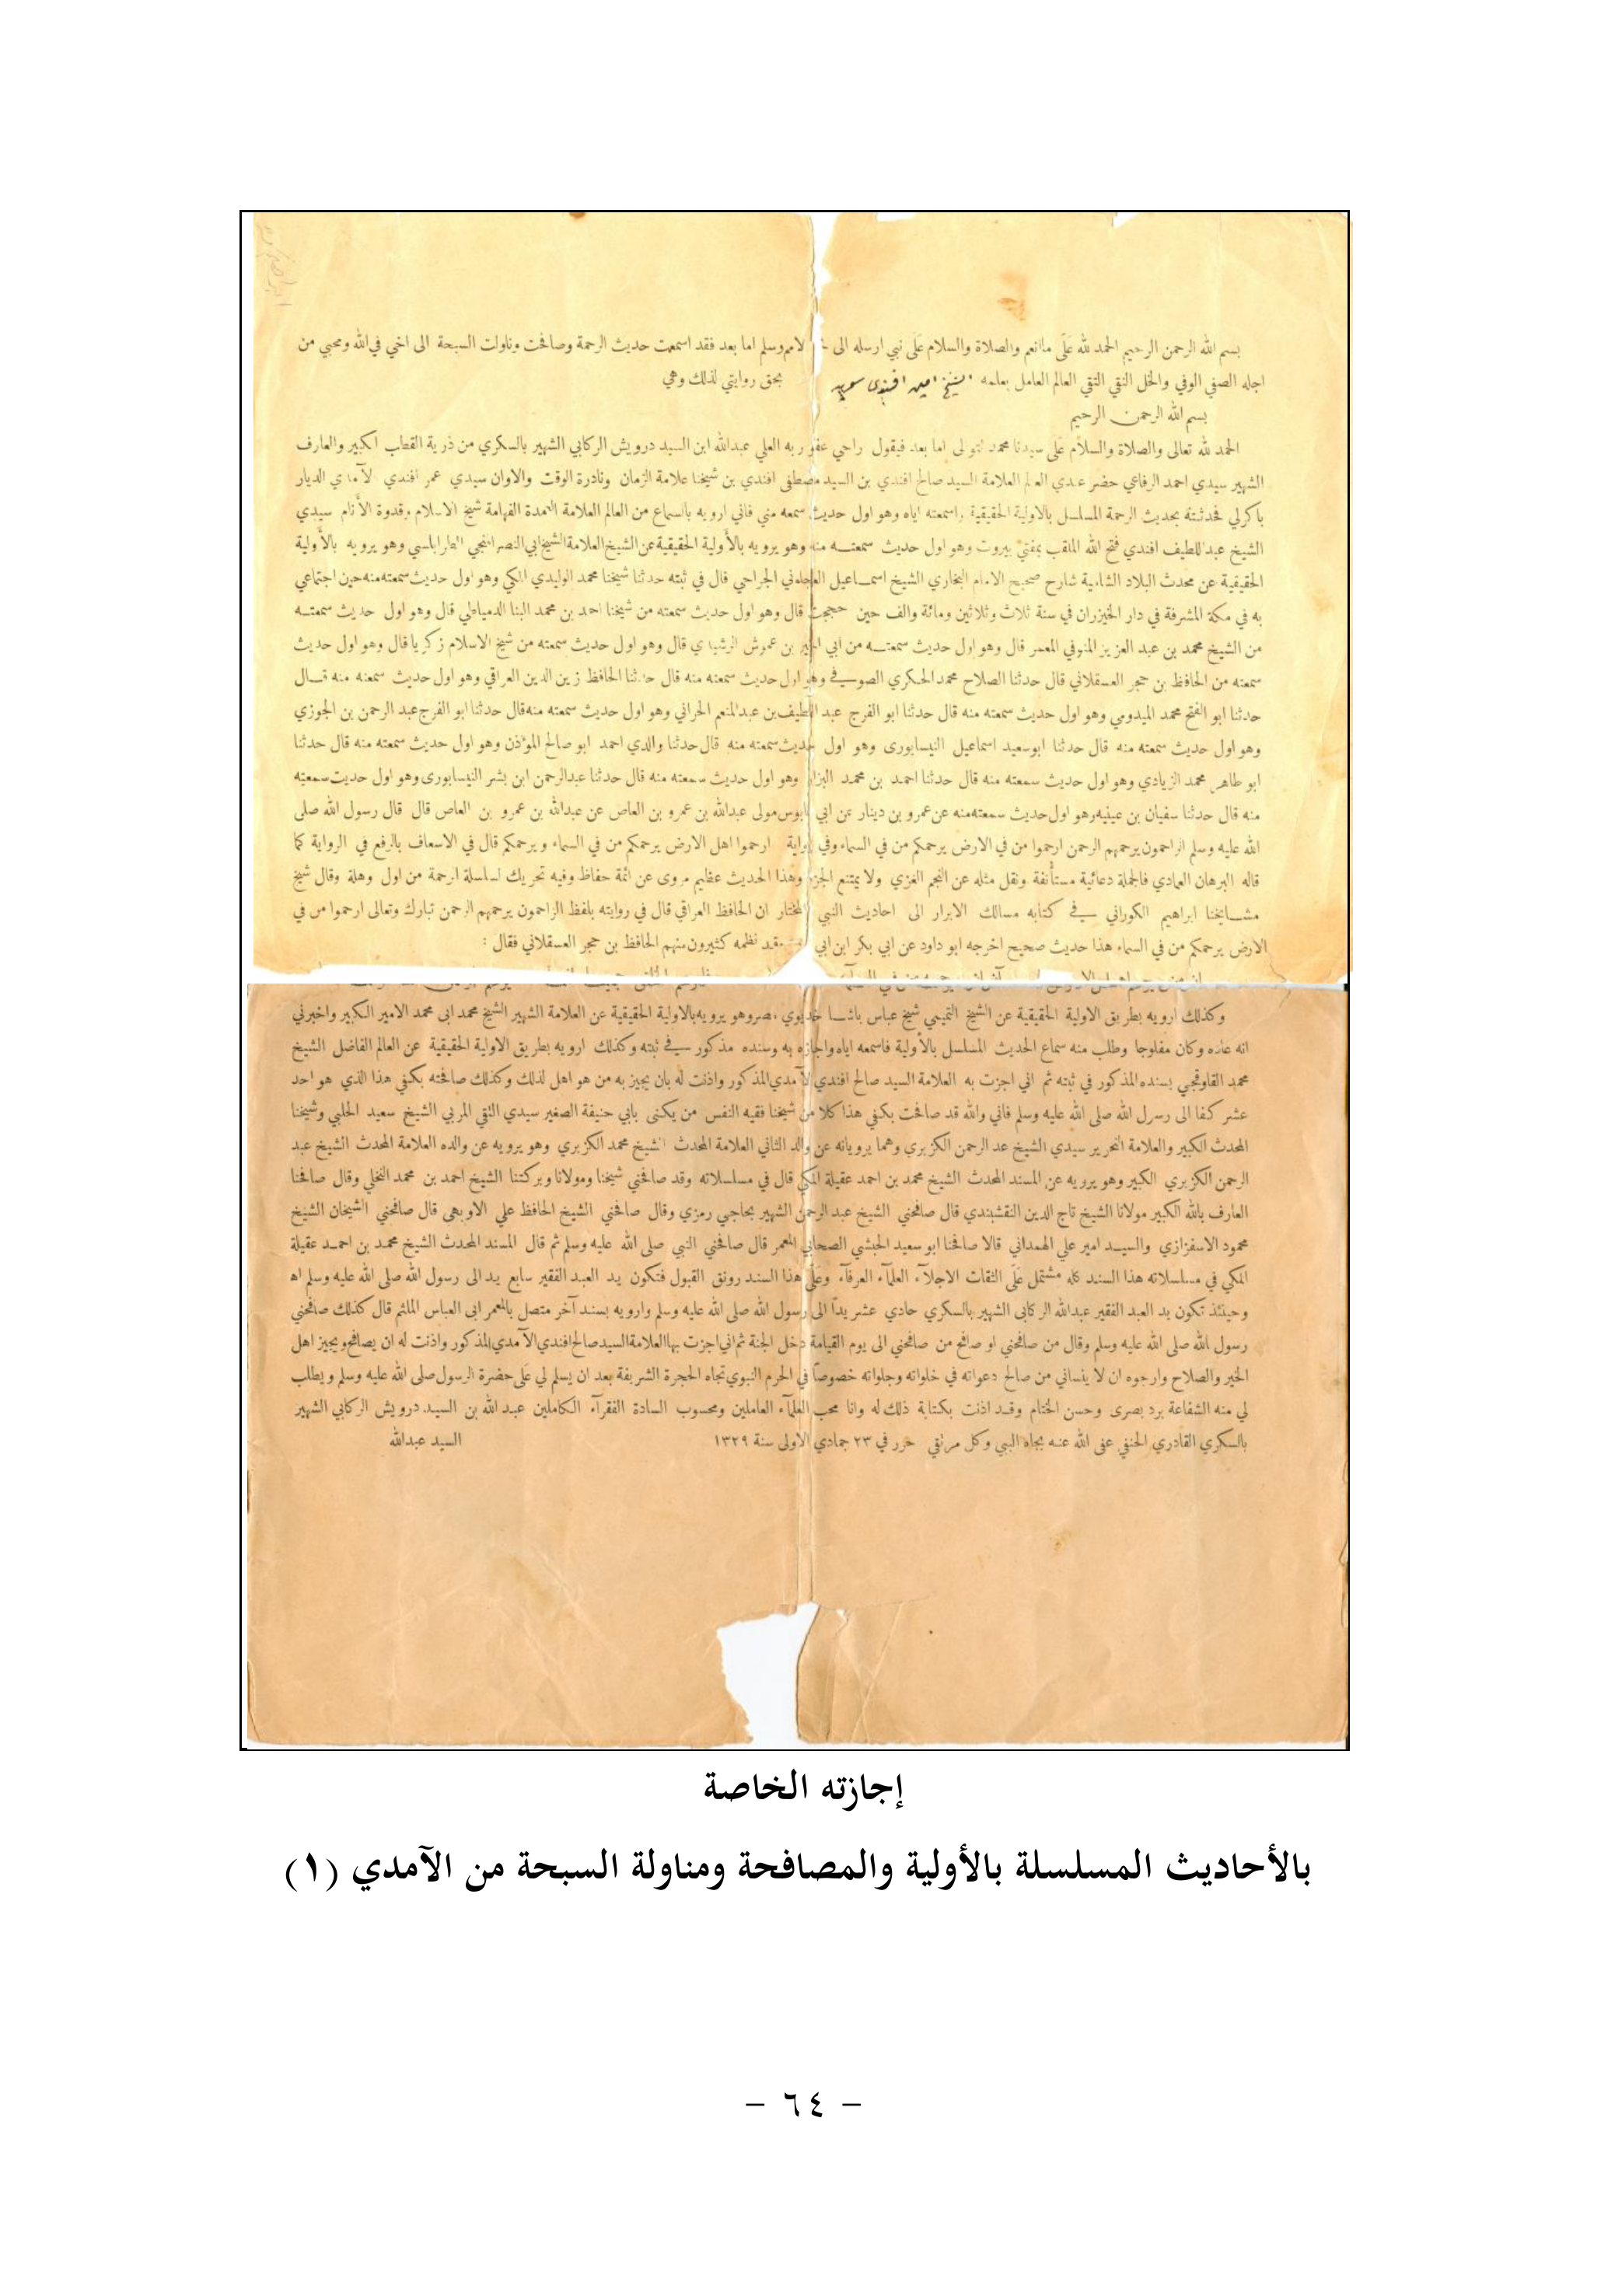 بسم الله الرحمن الرحيم الحمد لله عَلَى ما انعم والصلاة والسلام عَلَى نبي ارسله الى وسلم اما بعد فقد اسمعت حديث الرحمة وصافحت وناولت السبحة الى اخي في الله ومحبي من
اجله الصفي الوفي والخل النقي التقي العالم العامل بعلمه الشيخ امين افندي سويد بحق روايتي لذلك وهي
بسم الله الرحمن الرحيم
الحمد لله تعالى والصلاة والسلام عَلَى سيدنا محمد اما بعد فيقول راجي عفو ربه العلي عبدالله ابن السيد درويش الركابي الشهير بالسكري من ذرية القطب الكبير والعارف
الشهير سيدي احمد الرفاعي حضر عندي العالم العلامة السيد صالح افندي بن السيد مصطفى افندي بن شيخنا علامة الزمان ونادرة الوقت والاوان سيدي عمر افندي الآمدي الديار
باكرلي فحدثته بحديث الرحمة المسلسل بالاولية الحقيقية واسمعته اياه وهو اول حديث سمعه مني فاني ارويه بالسماع من العالم العلامة العمدة الفهامة شيخ الاسلام وقدوة الأنام سيدي
الشيخ عبد اللطيف افندي فتح الله الملقب بمفتي بيروت وهو اول حديث سمعته منه وهو يرويه بالأولية الحقيقية عن الشيخ العلامة الشيخ ابي النصر المنجي الطرابلسي وهو يرويه بالأولية
الحقيقية عن محدث البلاد الشامية شارح صحيح الامام البخاري الشيخ اسماعيل العجلوني الجراحي قال في ثبته حدثنا شيخنا محمد الوليدي المكي وهو اول حديث سمعته منه حين اجتماعي
به في مكة المشرفة في دار الخيزران في سنة ثلاث وثلاثين ومائة والف حين حججت قال وهو اول حديث سمعته من شيخنا احمد بن محمد البنا الدمياطي قال وهو اول حديث سمعته
من الشيخ محمد بن عبد العزيز المنوفي المعمر قال وهو اول حديث سمعته من ابي الخير بن عموش الرشيدي قال وهو اول حديث سمعته من شيخ الاسلام زكريا قال وهو اول حديث
سمعته من الحافظ بن حجر العسقلاني قال حدثنا الصلاح محمد الحكري الصوفي وهو اول حديث سمعته منه قال حدثنا الحافظ زين الدين العراقي وهو اول حديث سمعته منه قال
حدثنا ابو الفتح محمد الميدومي وهو اول حديث سمعته منه قال حدثنا ابو الفرج عبد اللطيف بن عبد المنعم الحراني وهو اول حديث سمعته منه قال حدثنا ابو الفرج عبد الرحمن بن الجوزي
وهو اول حديث سمعته منه قال حدثنا ابوسعيد اسماعيل النيسابوري وهو اول حديث سمعته منه قال حدثنا والدي احمد ابو صالح المؤذن وهو اول حديث سمعته منه قال حدثنا
ابو طاهر محمد الزيادي وهو اول حديث سمعته منه قال حدثنا احمد بن محمد البزاز وهو اول حديث سمعته منه قال حدثنا عبدالرحمن ابن بشر النيسابوري وهو اول حديث سمعته
منه قال حدثنا سفيان بن عيينه وهو اول حديث سمعته منه عن عمرو بن دينار عن ابي قابوس مولى عبدالله بن عمرو بن العاص عن عبدالله بن عمرو بن العاص قال قال رسول الله صلى
الله عليه وسلم الراحمون يرحمهم الرحمن ارحموا من في الارض يرحمكم من في السماء وفي رواية ارحموا اهل الارض يرحمكم من في السماء ويرحمكم قال في الاسعاف بالرفع في الرواية كما
قاله البرهان العمادي فالجملة دعائية مستأنفة ونقل مثله عن النجم الغزي ولا يمتنع الجزم وهذا الحديث عظيم مروى عن ائمة حفاظ وفيه تحريك لسلسلة الرحمة من اول وهلة وقال شيخ
مشايخنا ابراهيم الكوراني في كتابه مسالك الابرار الى احاديث النبي المختار ان الحافظ العراقي قال في روايته بلفظ الراحمون يرحمهم الرحمن تبارك وتعالى ارحموا من في
الارض يرحمكم من في السماء هذا حديث صحيح اخرجه ابو داود عن ابي بكر ابن ابي نظمه كثيرون منهم الحافظ بن حجر العسقلاني فقال :
وكذلك ارويه بطريق الاولية الحقيقية عن الشيخ التميمي شيخ عباس باشا خديوي مصر وهو يرويه بالاولية الحقيقية عن العلامة الشهير الشيخ محمد ابى محمد الامير الكبير واخبرني
انه عاده وكان مفلوجا وطلب منه سماع الحديث المسلسل بالأولية فاسمعه اياه واجازه به وسنده مذكور في ثبته وكذلك ارويه بطريق الاولية الحقيقية عن العالم الفاضل الشيخ
محمد القاوقجي بسنده المذكور في ثبته ثم اني اجزت به العلامة السيد صالح افندي الآمدي المذكور واذنت له بان يجيز به من هو اهل لذلك وكذلك صافحته بكفي هذا الذي هو احد
عشر كفا الى رسول الله صلى الله عليه وسلم فاني والله قد صافحت بكفي هذا كلا من شيخنا فقيه النفس من يكنى بابي حنيفة الصغير سيدي التقي المربي الشيخ سعيد الحلبي وشيخنا
المحدث الكبير والعلامة النحرير سيدي الشيخ عبد الرحمن الكزبري وهما يرويانه عن والد الثاني العلامة المحدث الشيخ محمد الكزبري وهو يرويه عن والده العلامة المحدث الشيخ عبد
الرحمن الكزبري الكبير وهو يرويه عن المسند المحدث الشيخ محمد بن احمد عقيلة المكي قال في مسلسلاته وقد صافحني شيخنا ومولانا وبركتنا الشيخ احمد بن محمد النخلي وقال صافحنا
العارف بالله الكبير مولانا الشيخ تاج الدين النقشبندي قال صافحني الشيخ عبد الرحمن الشهير بحاجي رمزي وقال صافحني الشيخ الحافظ علي الاوبهى قال صافحني الشيخان الشيخ
محمود الاسفزازي والسيد امير علي الهمداني قالا صافحنا ابو سعيد الحبشي الصحابي المعمر قال صافحني النبي صلى الله عليه وسلم ثم قال المسند المحدث الشيخ محمد بن احمد عقيلة
المكي في مسلسلاته هذا السند كله مشتمل عَلَى الثقات الاجلآء العلمآء العرفآء وعَلَى هذا السند رونق القبول فتكون يد العبد الفقير سابع يد الى رسول الله صلى الله عليه وسلم اه
وحينئذ تكون يد العبد الفقير عبدالله الركابي الشهير بالسكري حادي عشر يداً الى رسول الله صلى الله عليه وسلم وارويه بسند آخر متصل بالمعمر ابى العباس الملثم قال كذلك صافحني
رسول الله صلى الله عليه وسلم وقال من صافحني او صافح من صافحني الى يوم القيامة دخل الجنة ثم اني اجزت بها العلامة السيد صالح افندي الآمدي المذكور واذنت له ان يصافح ويجيز اهل
الخير والصلاح وارجوه ان لا ينساني من صالح دعواته في خلواته وجلواته خصوصاً في الحرم النبوي تجاه الحجرة الشريفة بعد ان يسلم لي عَلَى حضرة الرسول صلى الله عليه وسلم ويطلب
لي منه الشفاعة برد بصرى وحسن الختام وقد اذنت بكتابة ذلك له وانا محب العلمآء العاملين ومحسوب السادة الفقرآء الكاملين عبد الله بن السيد درويش الركابي الشهير
بالسكري القادري الحنفي عفى الله عنه بجاه النبي وكل مرتقي حرر في ٢٣ جمادي الاولى سنة ١٣٢٩ السيد عبدالله
إجازته الخاصة
بالأحاديث المسلسلة بالأولية والمصافحة ومناولة السبحة من الآمدي (١)
- ٦٤ -